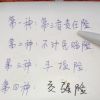 第一种：第三者责任险
第二种：不计免赔险
第三种：车损险
第四种：交强险